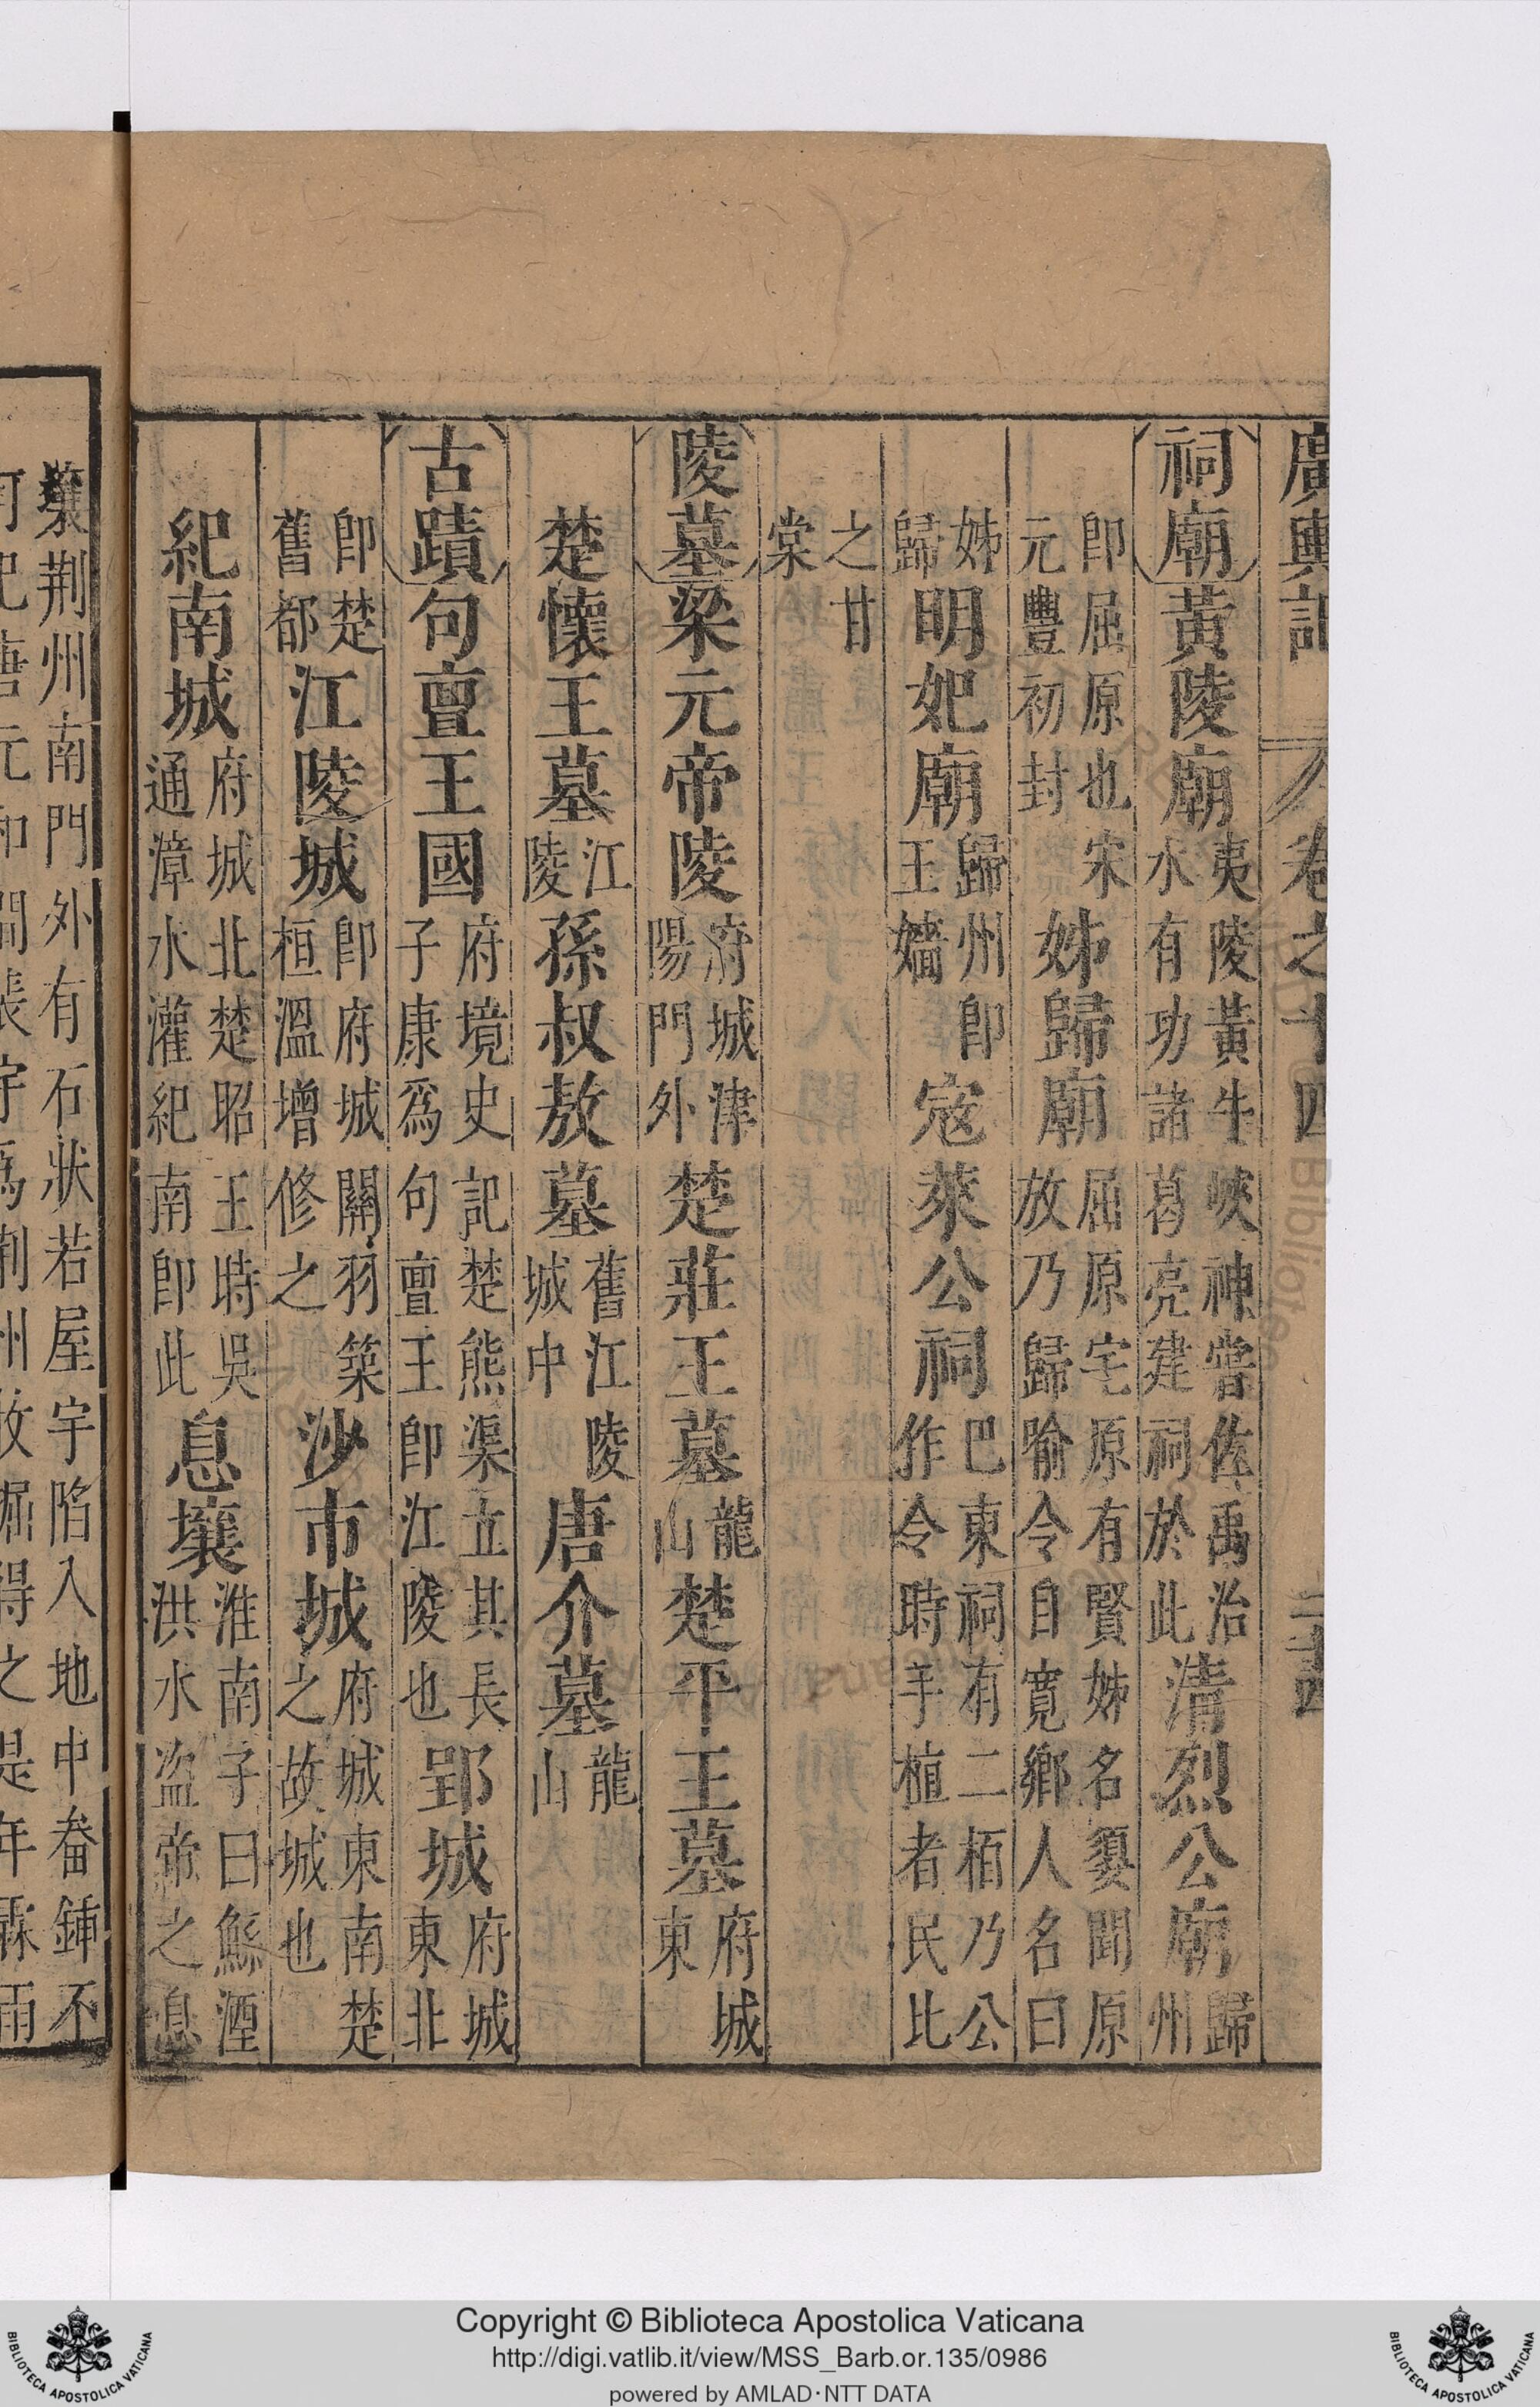 廣輿記 卷之十四
祠廟黃陵廟夷陵黃牛峽神嘗佐禹治水有功諸葛亮建祠於此清烈公廟歸州
即屈原也宋元豐初封姊歸廟屈原宅原有賢姊名嬃聞原放乃歸喻令自寬鄉人名曰
姊歸明妃廟歸州即王嬙寇萊公祠巴東祠有二栢乃公作令時手植者民比
之甘棠
陵墓梁元帝陵府城津陽門外楚莊王墓龍山楚平王墓府城東
楚懷王墓江陵孫叔敖墓舊江陵城中唐介墓龍山
古蹟句亶王國府境史記楚熊渠立其長子康爲句亶王即江陵也郢城府城東北
即楚舊都江陵城即府城關羽築桓溫增修之沙市城府城東南楚之故城也
紀南城府城北楚昭王時吳通漳水灌紀南即此息壤淮南子曰鯀湮洪水盜帝之息
壤荆州南門外有石狀若屋宇陷入地中畚鍤不
可犯唐元和間裴宇爲荆州牧掘得之是年霖雨
Copyright © Biblioteca Apostolica Vaticana
http://digi.vatlib.it/view/MSS_Barb.or.135/0986
powered by AMLAD·NTT DATA
BIBLIOTECA APOSTOLICA VATICANA
BIBLIOTECA APOSTOLICA VATICANA